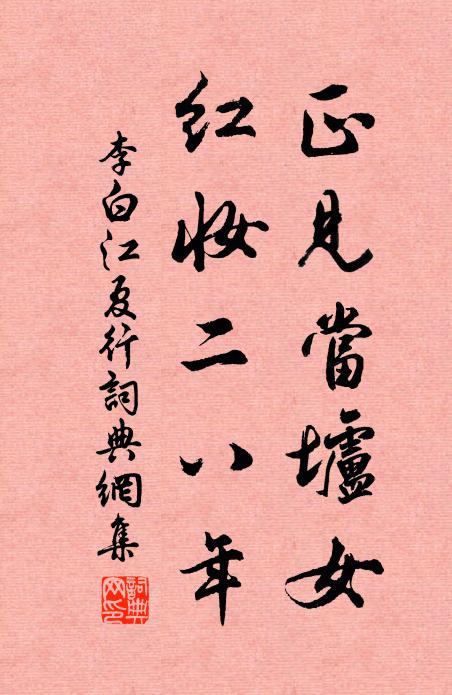 正見當壚女
红妝二八年
李白江夏行詞典網集
詞典网印